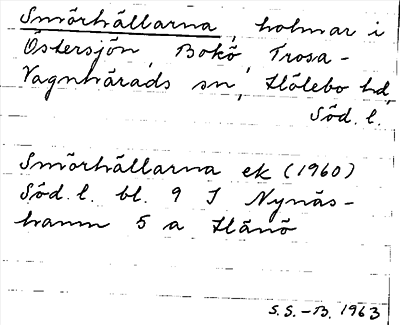 Smörhällarna, holmar i
Östersjön, Bokö, Trosa-
Vagnhärads sn, Hölebo hd,
Söd. l.
Smörhällarna ek (1960)
Söd. l. bl. 9 I Nynäs-
hamn 5 a Hånö
S.S.-B. 1963